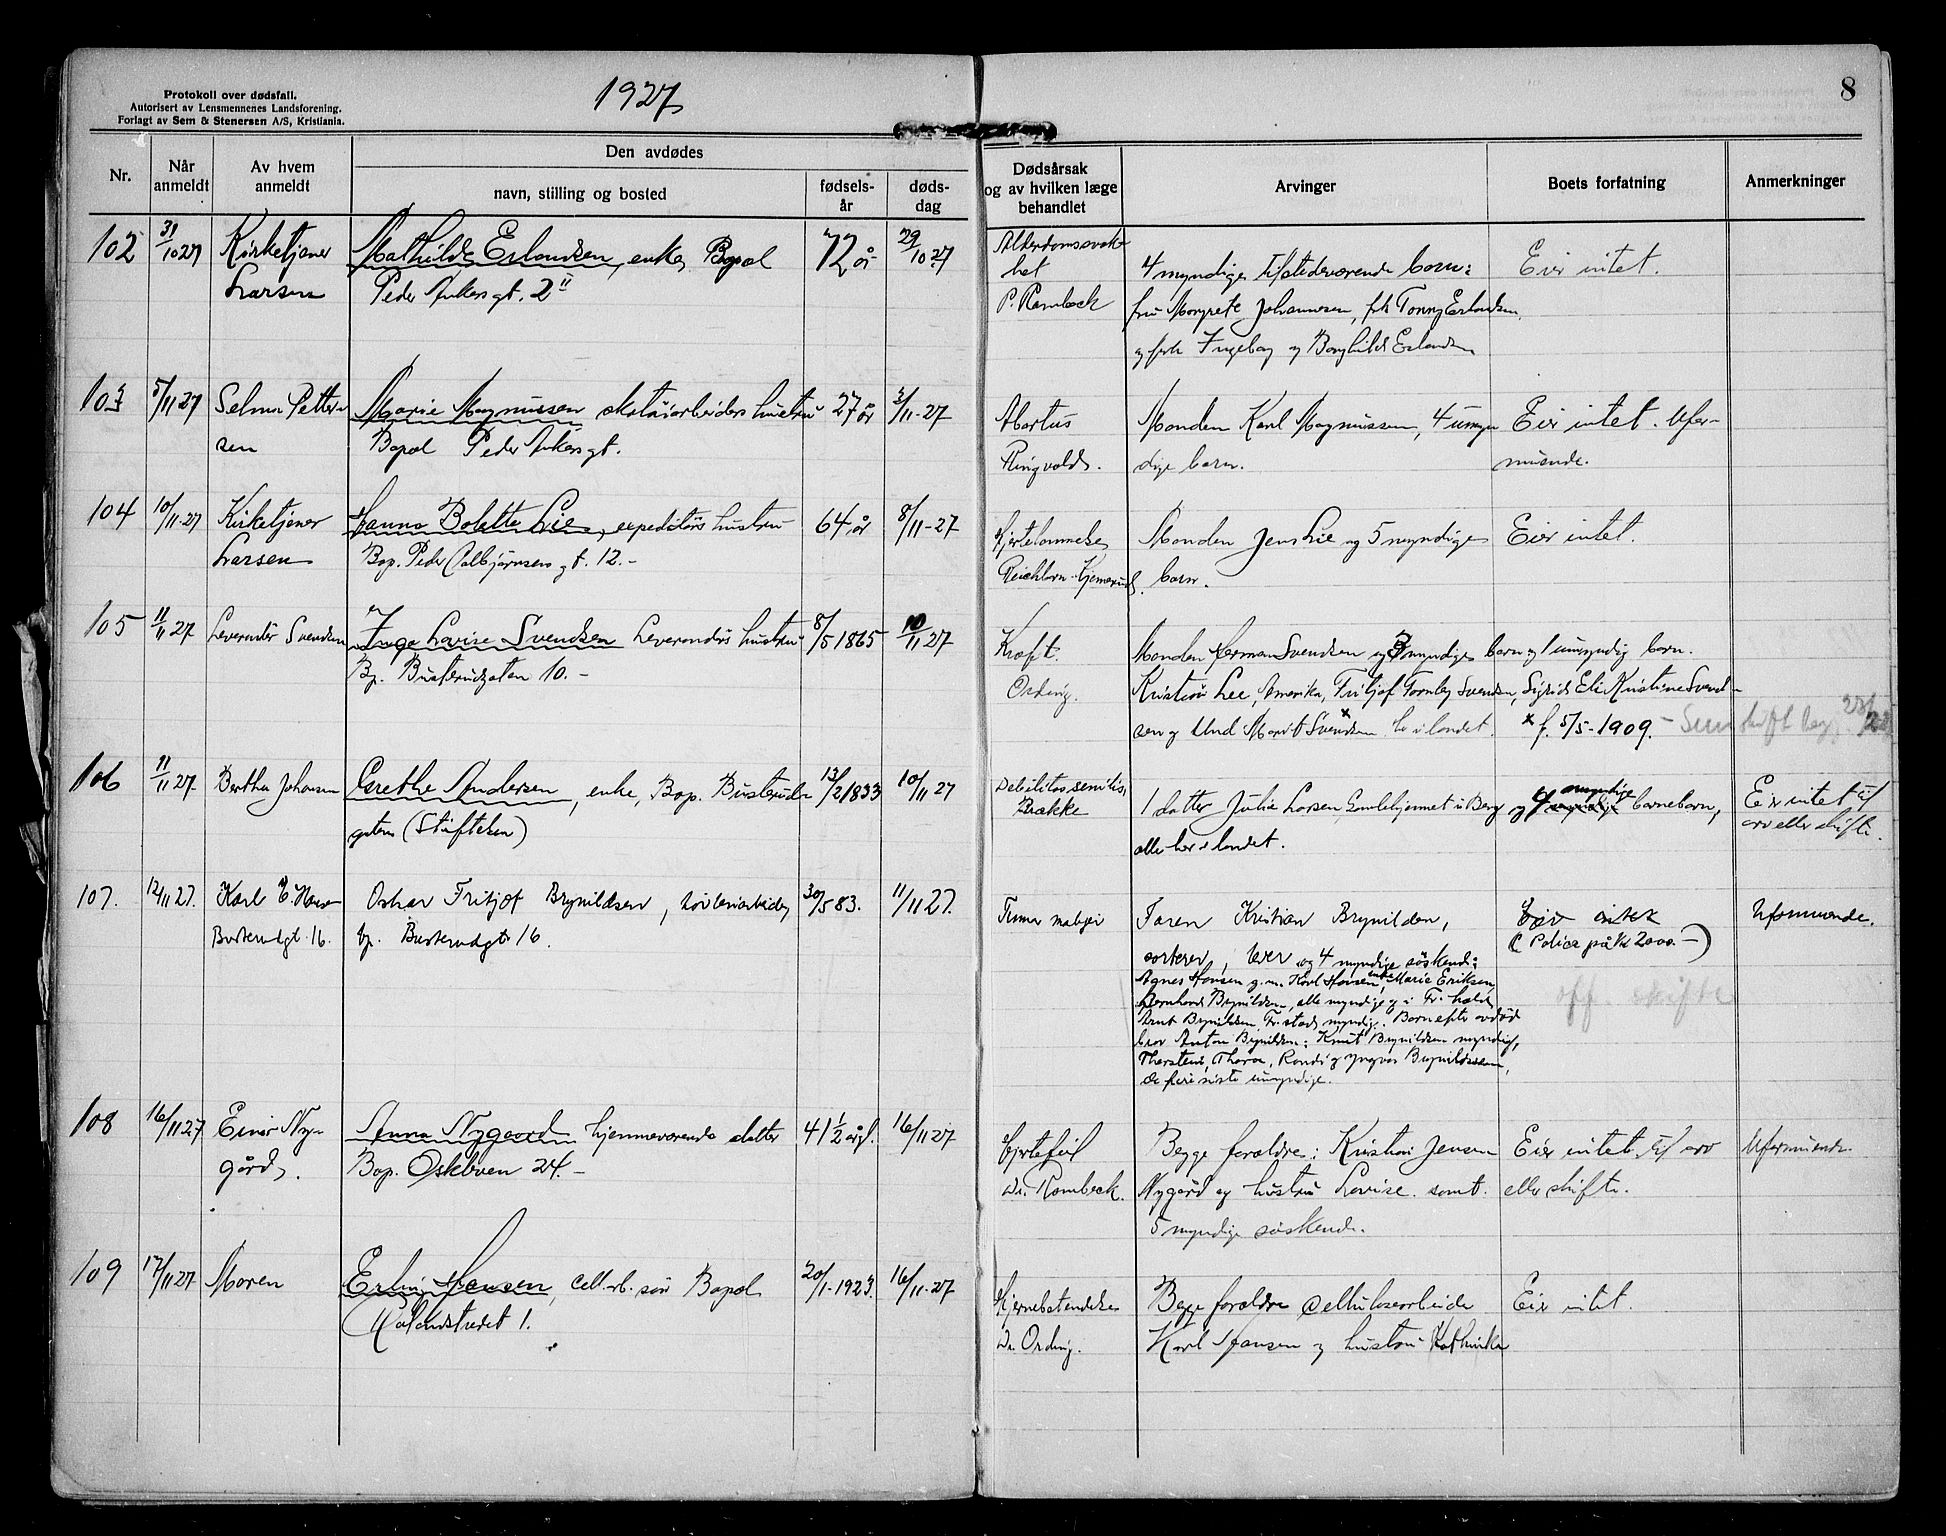 Protokoll over dødsfall.
Autorisert av Lensmennenes Landsforening.
Forlagt av Sem & Stenersen A/S, Kristiania.
1927
8
Nr.
Når anmeldt
Av hvem anmeldt
Den avdødes
navn, stilling og bosted
fødsels-år
døds-dag
Dødsårsak og av hvilken læge behandlet
Arvinger
Boets forfatning
Anmerkninger
102 31/10 27 Kirketjener Mathilde Erlandsen, enke, Bopæl 72 år 29/10 27
Larsen Peder Ankers gt. 2 II
Alderdomssvak-
het
P. Rambeck
4 myndige tilstedeværende barn:
fru Margrete Johannesen, frk Tonny Erlandsen,
og frk Ingeborg og Borghild Erlandsen
Eier intet.
103 5/11 27 Selma Petter- Marie Magnussen skotøiarbeiders hustru 27 år 3/11-27
sen Bopæl Peder Ankers gt.
Abortus
Ringvold.
Manden Karl Magnussen, 4 umyn
dige barn.
Eier intet. Ufor-
muende.
104 10/11-27 Kirketjener Hanna Bolette Lie, expeditørs hustru 64 år 8/11-27
Larsen Bop. Peder Colbjørnsens gt. 12.-
Hjertelammelse
Reichborn-Kjennerud.
Manden Jens Lie og 5 myndige
barn.
Eier intet.
105 11/11 27 Leverandør Svendsen Inga Lovise Svendsen Leverandørs hustru 8/5 1865 10/11 27
Bp. Busterudgaten 10.-
Kræft.
Ording.
Manden Herman Svendsen og 3 myndige barn og 1 umyndig barn.
Kristian Lee, Amerika, Fritjof Tornby Svendsen, Sigrid Eli Kristine Svend-
sen og Aud Marit Svendsen x bo i landet. x f. 5/5-1909.
106 11/11 27. Berthe Johansen Grethe Andersen, enke, Bop. Busterud- 13/2 1833 10/11 27
gaten (Stiftelsen)
Debilitas senilis,
Brække
1 datter Julie Larsen, Gamlehjemmet i Berg og 4 myndige barnebarn,
alle her i landet.
Eier intet til
arv eller skifte.
107. 12/11 27. Karl E. Hansen Oskar Fritjof Brynildsen, tøvleriarbeider, 30/5 83. 11/11 27.
Busterudgt. 16. bp. Busterudgt 16.
Tumor
Faren Kristian Brynildsen,
sorterer, lever og 4 myndige søskende:
Agnes Hansen g.m. Karl Hansen, enke Marie Eriksen,
Bernhard Brynildsen, alle myndige og i Fr.hald,
Arnt Brynildsen, Fr.stad, myndig. Barn efter avdød
bror Anton Brynildsen: Knut Brynildsen myndig,
Thorstein, Thora, Randi og Yngvar Brynildssen,
de fire siste umyndige.
Eier intet
(Police på kr 2000.-)
off. skifte
Uformuende.
108 16/11 27 Einar Ny- Anna Nygaard hjemmeværende datter 41 1/2 årgl. 16/11 27
gård. Bop. Oskleven 24.-
Hjertefeil
Dr. Rambeck.
Begge forældre: Kristian Jensen
Nygård og hustru Lovise. samt.
5 myndige søskende.
Eier intet til arv
eller skifte.
Uformuende
109 17/11 27 Moren Erling Hansen, cell.arb. søn Bopæl 20/1-1923. 16/11-27
Ølandstredet 1.
Hjernebetendelse
Dr. Ording.
Begge forældre cellulosearbeide
Karl Hansen og hustru Kathinka
Eier intet.